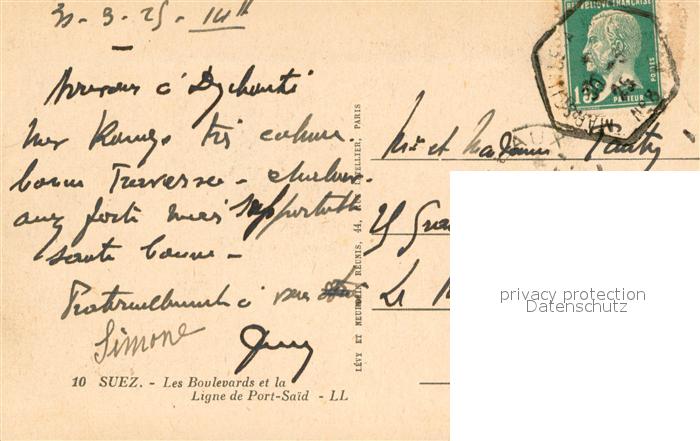 30-3-25 14h
Arrivons à Djibouti
Mer Rouge très calme.
bonne Traversée - chaleur
assez forte mais supportable
santé bonne -
Fraternellement à vous
Simone
10 SUEZ. - Les Boulevards et la
Ligne de Port-Saïd - LL
LÉVY ET NEURDEIN RÉUNIS, 44, RUE LETELLIER, PARIS
RÉPUBLIQUE FRANÇAISE
15
PASTEUR
POSTES
Mr et Madame
Le
privacy protection
Datenschutz